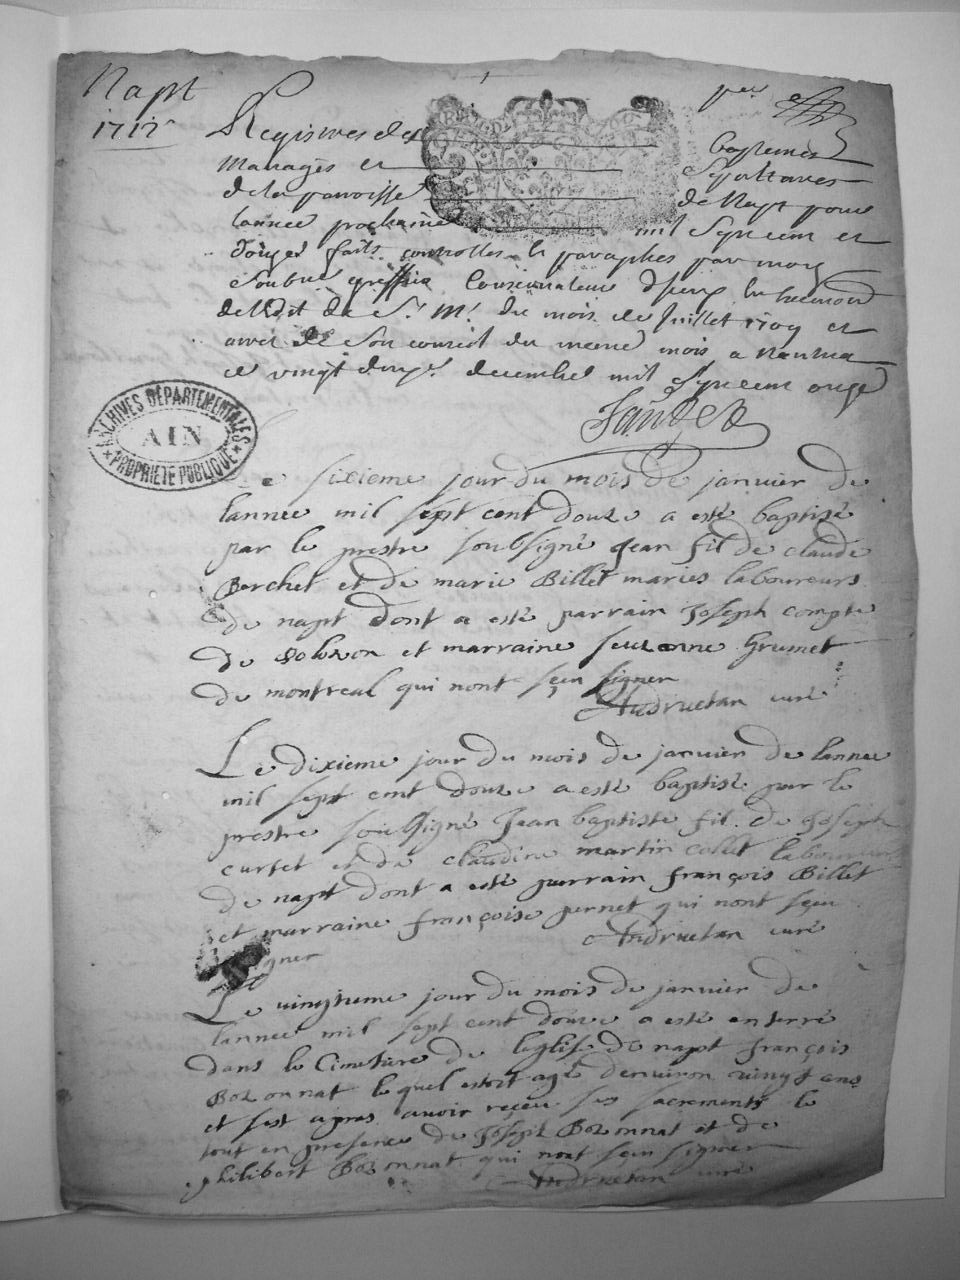 Napt
1712
Registres des baptemes
Mariages et Sepultures
de la parroisse de Napt pour
lannee prochaine mil Sept cent et
douze faits controllés et paraphés par moy
greffier Conservateur
de Ledit de S. M. du mois de Juillet 1709 et
arret de Son conseil du meme mois a Nantua
ce vingt deux decembre mil Sept cent onze
ARCHIVES DÉPARTEMENTALES
AIN
PROPRIETE PUBLIQUE
Le sixieme jour du mois de janvier de
lannee mil sept cent douze a esté baptisé
par le prestre soubsigné jean fil de claude
Berchet et de marie Billet maries laboureurs
de napt dont a esté parrain joseph compte
de solvon et marraine suzanne Grumet
de montreal qui nont sçeu signer
Andruetan curé
Le dixieme jour du mois de janvier de lannee
mil sept cent douze a esté baptisé par le
prestre soubsigné jean baptiste fil de joseph
curtet et de claudine martin collet laboureurs
de napt dont a esté parrain françois Billet
et marraine françoise pernet qui nont sçeu
signer Andruetan curé
Le vingtieme jour du mois de janvier de
lannee mil sept cent douze a esté enterré
dans le Cimetiere de leglise de napt françois
Bozonnat lequel estoit agé denviron vingt ans
et sest apres avoir reçeu ses sacrements le
tout en presence de joseph Bozonnat et de
philibert Bozonnat qui nont sçeu signer
Andruetan curé